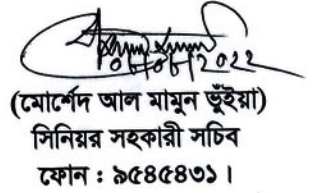 ০৮/০৮/২০২২
(মোর্শেদ আল মামুন ভূঁইয়া)
সিনিয়র সহকারী সচিব
ফোন : ৯৫৪৫৪৩১।